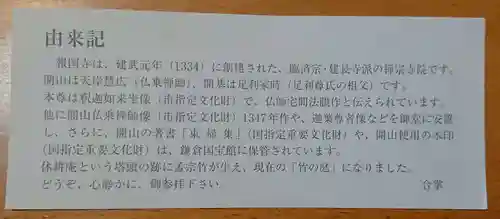 由来記
報国寺は、建武元年(1334)に創建された、臨済宗・建長寺派の禅宗寺院です。
開山は天岸慧広(仏乗禅師)、開基は足利家時(足利尊氏の祖父)です。
本尊は釈迦如来坐像(市指定文化財)で、仏師宅間法眼作と伝えられています。
他に開山仏乗禅師像(市指定文化財)1347年作や、迦葉尊者像などを御堂に安置
し、さらに、開山の著書「東帰集」(国指定重要文化財)や、開山使用の木印
(国指定重要文化財)は、鎌倉国宝館に保管されています。
休耕庵という塔頭の跡に孟宗竹が生え、現在の「竹の庭」になりました。
どうぞ、心静かに、御参拝下さい。 合掌